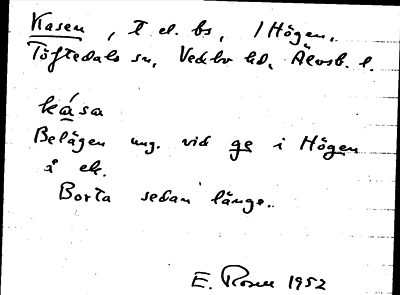 Kasen, T el. bs, /Högen,
Töftedals sn, Vedbo hd, Älvsb. l.
kása
Belägen ung. vid ge i Högen
å ek.
Borta sedan länge.
E. Rosen 1952